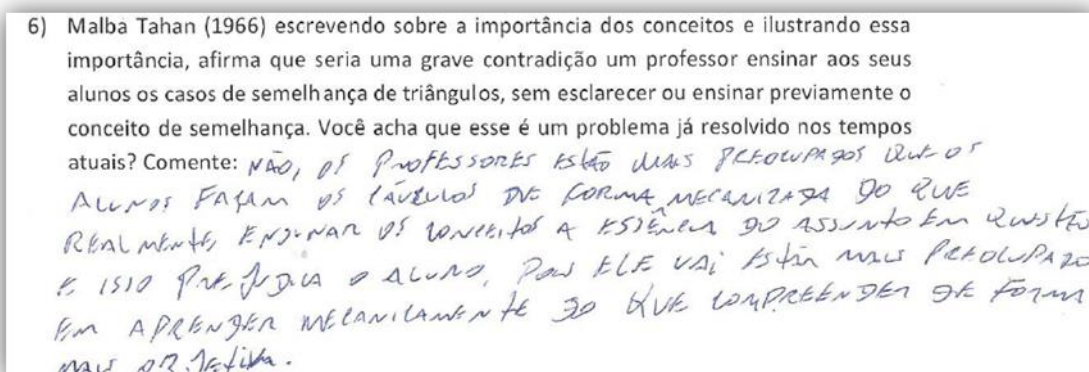 6) Malba Tahan (1966) escrevendo sobre a importância dos conceitos e ilustrando essa
importância, afirma que seria uma grave contradição um professor ensinar aos seus
alunos os casos de semelhança de triângulos, sem esclarecer ou ensinar previamente o
conceito de semelhança. Você acha que esse é um problema já resolvido nos tempos
atuais? Comente: NÃO, OS PROFESSORES ESTÃO MAIS PREOCUPADOS QUE OS
ALUNOS FAÇAM OS CÁLCULOS DE FORMA MECANIZADA DO QUE
REALMENTE, ENSINAR OS CONCEITOS A ESSÊNCIA DO ASSUNTO EM QUESTÃO
E ISSO PREJUDICA O ALUNO, POIS ELE VAI ESTAR MAIS PREOCUPADO
EM APRENDER MECANICAMENTE DO QUE COMPREENDER DE FORMA
MAIS OBJETIVA.